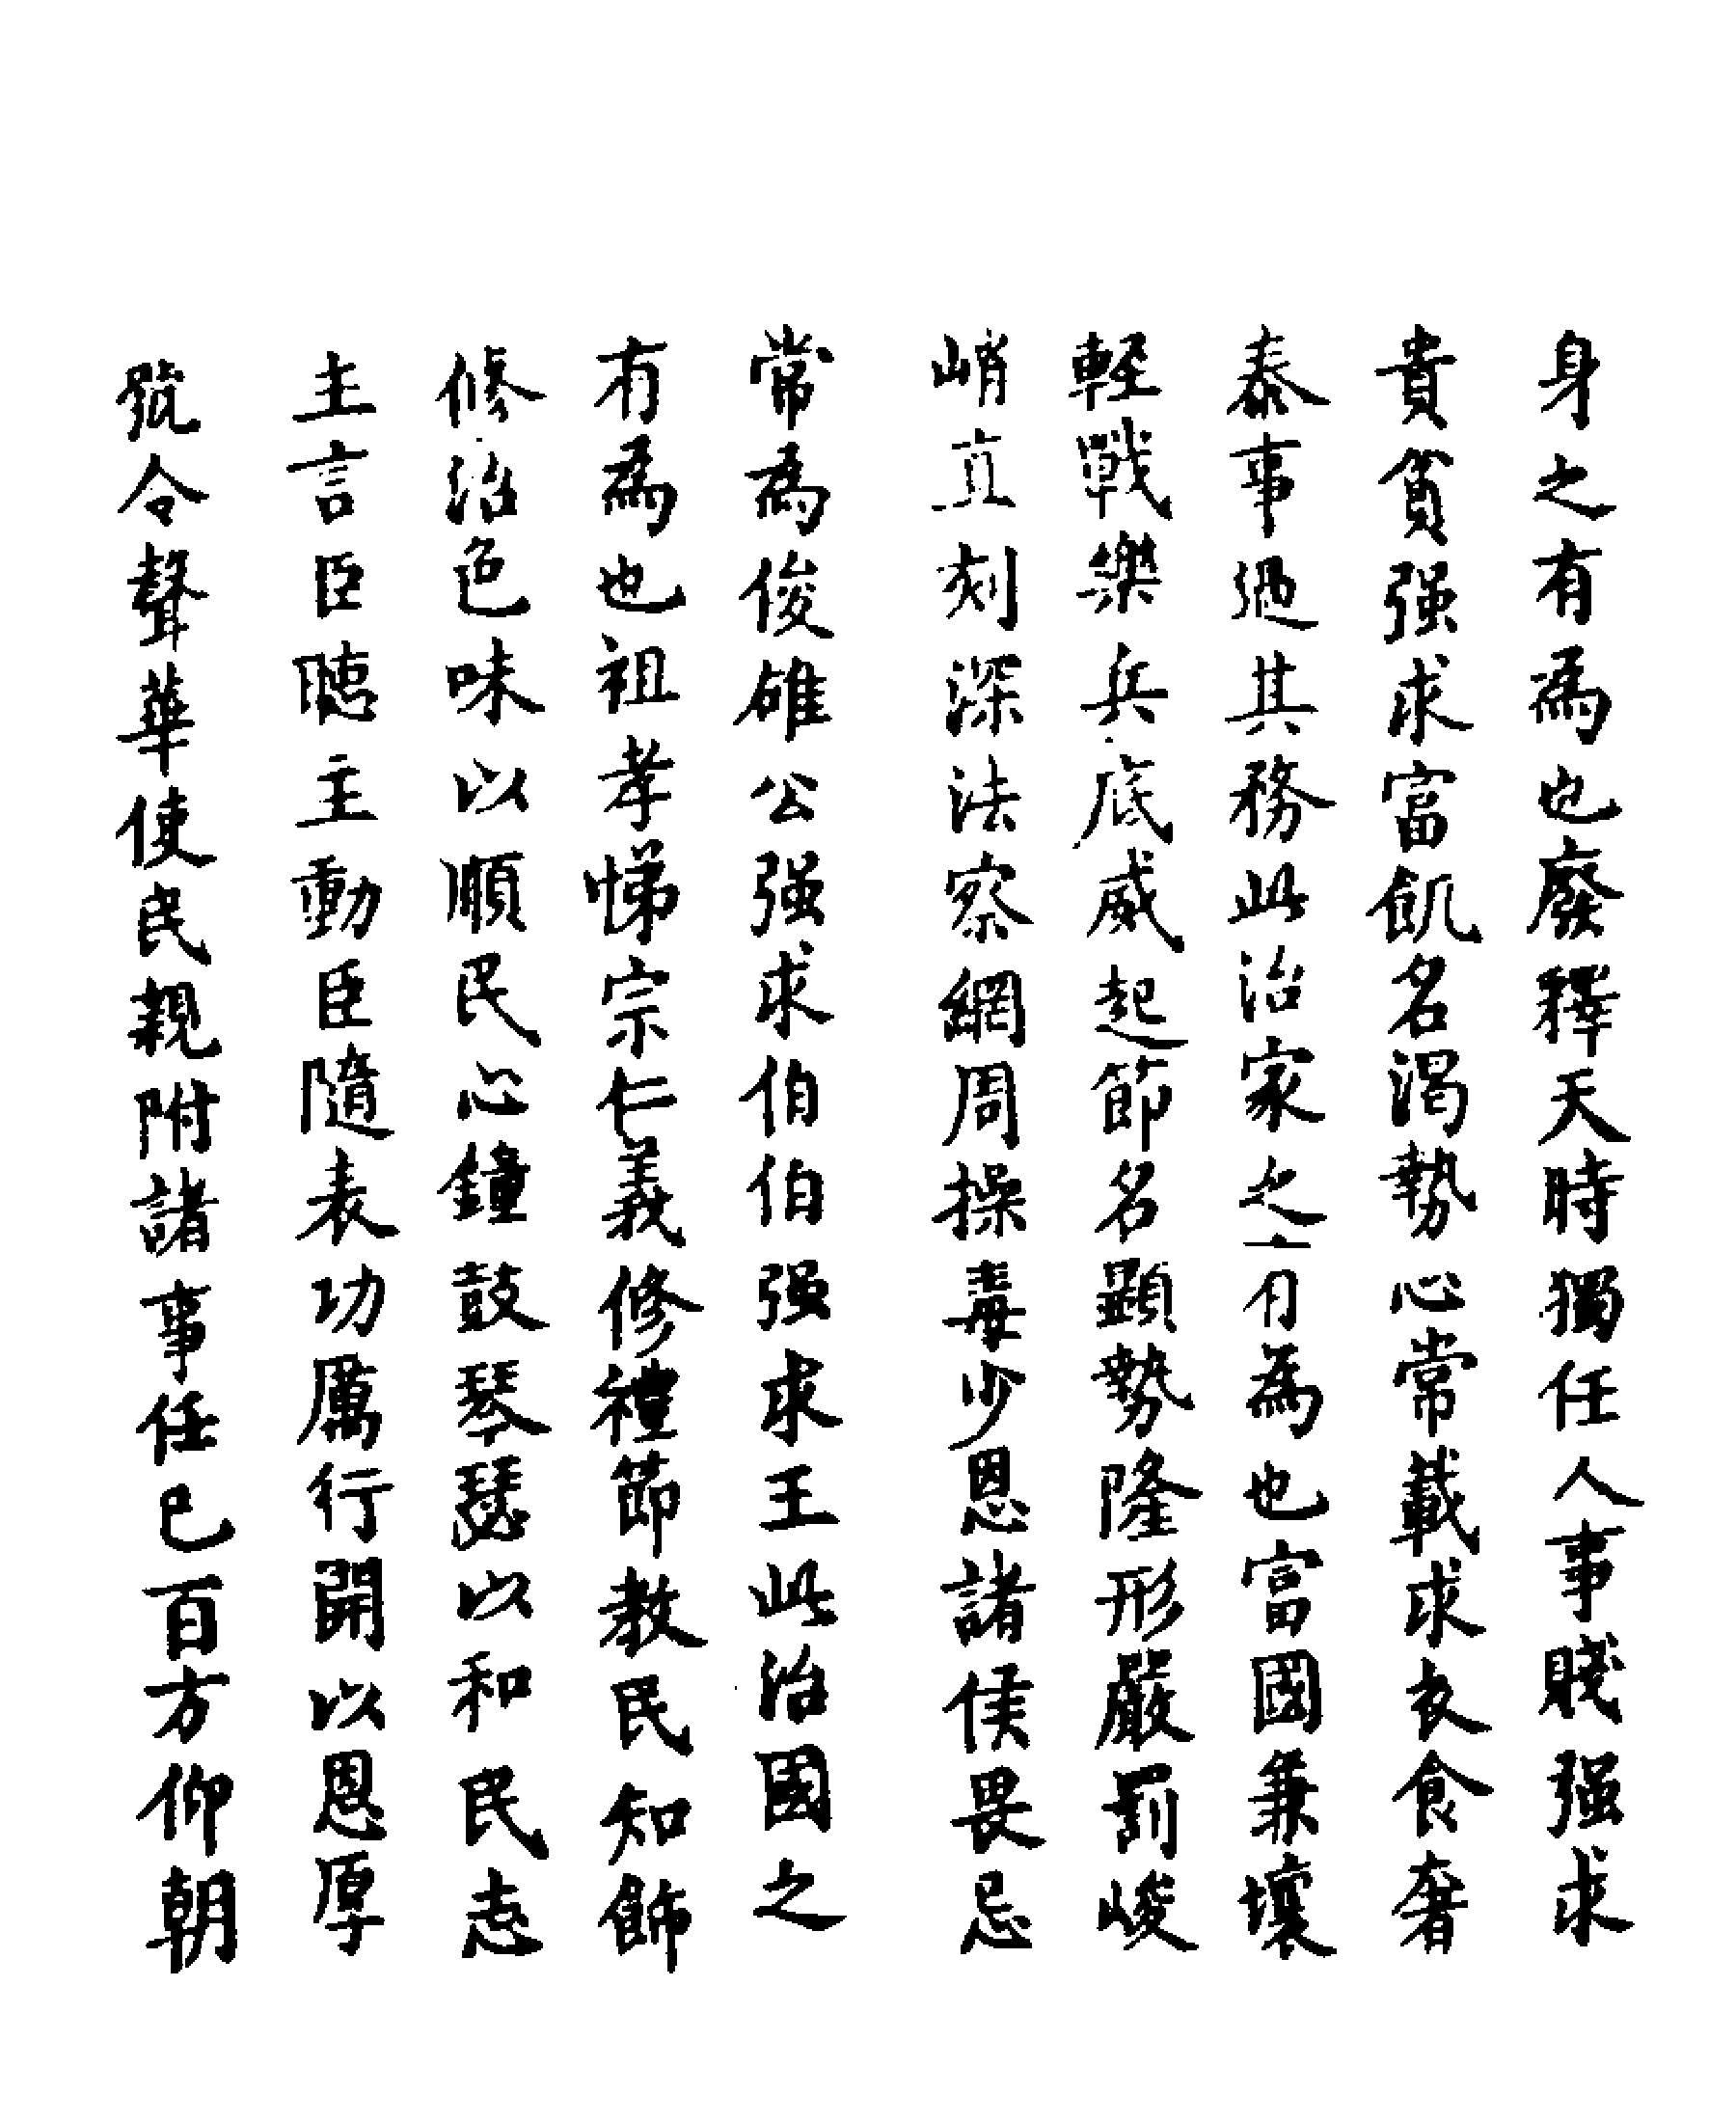 身之有為也廢釋天時獨任人事賤强求
貴貧强求富飢名渴勢心常載求衣食奢
泰事過其務此治家之有為也富國兼壤
輕戰樂兵底威起節名顯勢隆形嚴罰峻
峭直刻深法察網周操毒少恩諸侯畏忌
常為俊雄公强求伯伯强求王此治國之
有為也祖孝悌宗仁義修禮節教民知飾
修治色味以順民心鐘鼓琴瑟以和民志
主言臣聽主動臣隨表功厲行開以恩厚
號令聲華使民親附諸事任已百方仰朝